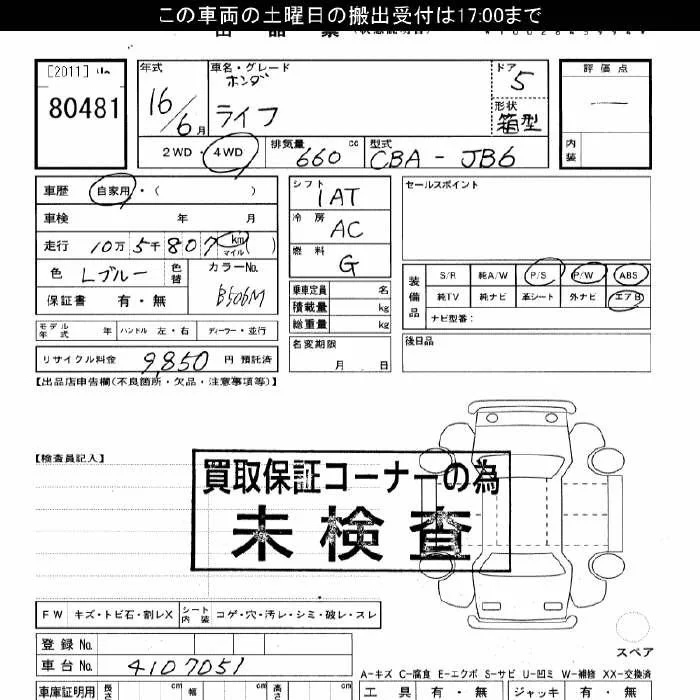 この車両の土曜日の搬出受付は17:00まで
[2011]
80481
年式
16/6月
車名・グレード
ホンダ
ライフ
ドア
5
形状
箱型
評価点
内装
2WD・4WD
排気量
660 cc
型式
CBA - JB6
車歴
自家用・(　　)
車検
年　月
走行
10万5千807 km マイル ( )
色
Lブルー
色替
カラーNo.
B506M
保証書
有・無
シフト
1AT
冷房
AC
燃料
G
乗車定員
名
積載量
kg
総重量
kg
名変期限
月　日
セールスポイント
装備品
S/R 純A/W P/S P/W ABS
純TV 純ナビ 革シート 外ナビ エアB
ナビ型番：
後日品
モデル年式
年
ハンドル 左・右
ディーラー・並行
リサイクル料金
9,850
円 預託済
【出品店申告欄(不良箇所・欠品・注意事項等)】
【検査員記入】
買取保証コーナーの為
未検査
FW
キズ・トビ石・割レX
シート内装
コゲ・穴・汚レ・シミ・破レ・スレ
登録No.
車台No.
4107051
スペア
A-キズ C-腐食 E-エクボ S-サビ U-凹ミ W-補修 XX-交換済
車庫証明用
長さ
cm
幅
cm
高さ
cm
工具
有・無
ジャッキ
有・無